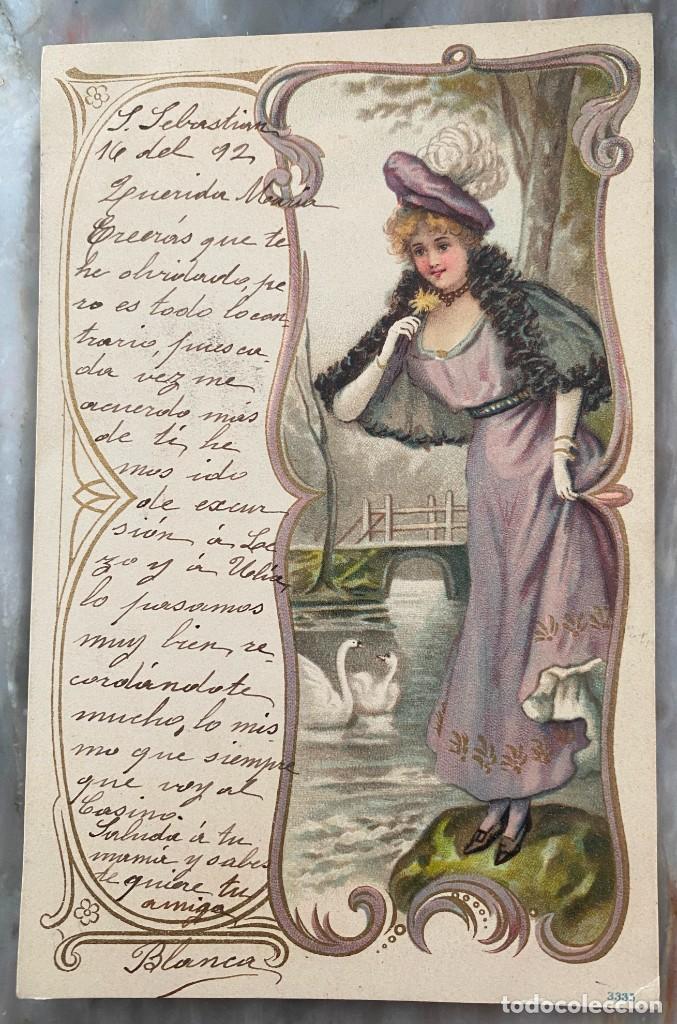 S. Sebastian
16 del 92
Querida María
Creerás que te
he olvidado, pe
ro es todo lo con-
trario, pues ca
da vez me
acuerdo más
de ti, he
mos ido
de excur
sión á Le
zo y á Ulía
lo pasamos
muy bien, re
cordándote
mucho, lo mis
mo que siempre
que voy al
Casino.
Saluda á tu
mamá y sabes
te quiere tu
amiga
Blanca
3335
todocoleccion